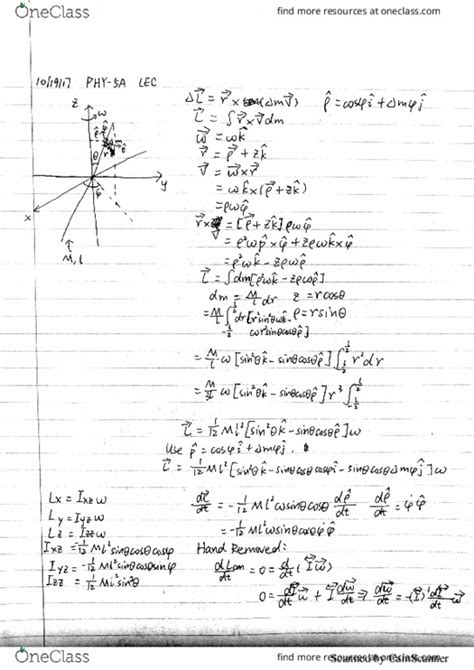 OneClass
find more resources at oneclass.com
10/19/17 PHY-5A LEC
z
ω
θ
y
x
M, l
ΔL⃗ = r⃗ × (Δm v⃗) ρ̂ = cosφî + sinmφĵ
L⃗ = ∫r⃗ × v⃗dm
ω⃗ = ωk̂
r⃗ = ρ⃗ + zk̂
v⃗ = ω⃗ × r⃗
= ωk̂ × (ρ⃗ + zk̂)
= ρωφ̂
r⃗ × v⃗ = [ρ⃗ + zk̂] ρωφ̂
= ρ²ωρ̂ × φ̂ + zρωk̂ × φ̂
= ρ²ωk̂ - zρωρ̂
L⃗ = ∫dm[ρ²ωk̂ - zρωρ̂]
dm = M/l dr z = rcosθ
= M/l ∫ dr[r²sin²θωk̂ - ρ = rsinθ
ωr²sinθcosθρ̂]
= M/l ω [sin²θk̂ - sinθcosθρ̂] ∫ r²dr
= M/3l ω [sin²θk̂ - sinθcosθρ̂] r³
L⃗ = 1/12 Ml² [sin²θk̂ - sinθcosθρ̂] ω
Use ρ̂ = cosφî + sinmφĵ,
L⃗ = 1/12 Ml² [sin²θk̂ - sinθcosθcosφî - sinθcosθsinmφĵ] ω
Lx = Ixz ω
Ly = Iyz ω
Lz = Izz ω
Ixz = -1/12 Ml² sinθcosθcosφ
Iyz = -1/12 Ml² sinθcosθsinφ
Izz = 1/12 Ml² sin²θ
dL⃗/dt = -1/12 Ml² ωsinθcosθ dρ̂/dt dρ̂/dt = φ̇ φ̂
= -1/12 Ml² ωsinθcosθ φ̇ φ̂
Hand Removed:
= 0 = d/dt (I⃗ ω⃗)
Scanned by CamScanner
OneClass
find more resources at oneclass.com